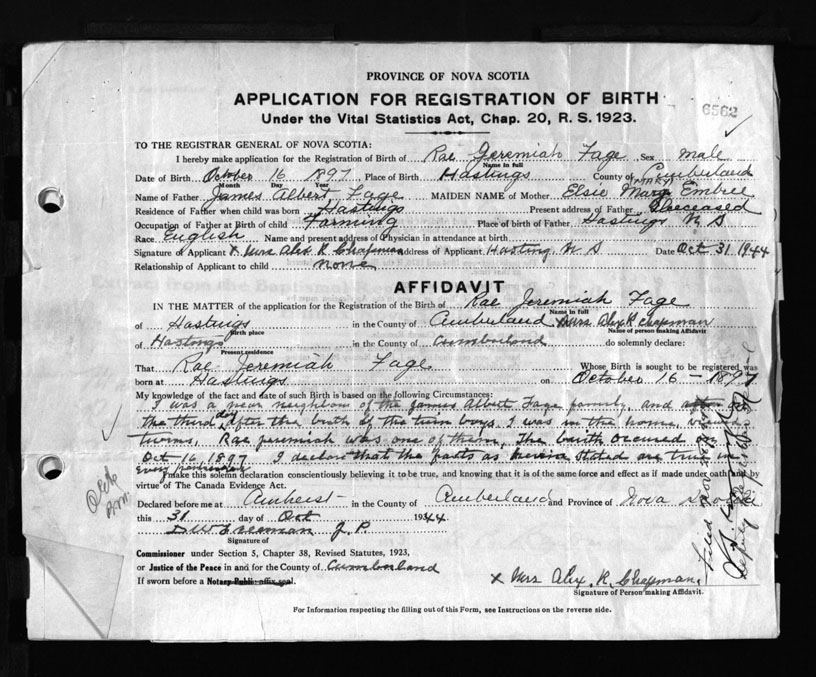 PROVINCE OF NOVA SCOTIA
APPLICATION FOR REGISTRATION OF BIRTH
6562
Under the Vital Statistics Act, Chap. 20, R. S. 1923.
TO THE REGISTRAR GENERAL OF NOVA SCOTIA:
I hereby make application for the Registration of Birth of Rae Jeremiah Fage Sex male
Name in full
Date of Birth October 16 1897 Place of Birth Hastings County of Cumberland
Month Day Year
Name of Father James Albert Fage MAIDEN NAME of Mother Elsie Mary Embree
Residence of Father when child was born Hastings Present address of Father Deceased
Occupation of Father at Birth of child Farming Place of birth of Father Hastings N S
Race English Name and present address of Physician in attendance at birth
Signature of Applicant x Mrs Alex R Chapman address of Applicant Hasting N S Date Oct 31 1944
Relationship of Applicant to child none
AFFIDAVIT
IN THE MATTER of the application for the Registration of the Birth of Rae Jeremiah Fage
Name in full
of Hastings in the County of Cumberland Mrs Alex R Chapman
Birth place Name of person making Affidavit
of Hastings in the County of Cumberland do solemnly declare:
Present residence
That Rae Jeremiah Fage Whose Birth is sought to be registered was
born at Hastings on October 16 - 1897
My knowledge of the fact and date of such Birth is based on the following Circumstances:
I was a near neighbour of the James Albert Fage family, and after on
the third day after the birth of the twin boys. I was in the home
twins. Rae Jeremiah was one of them. The birth occured on
Oct 16, 1897 I declare that the facts as herein stated are true in
every particular
I make this solemn declaration conscientiously believing it to be true, and knowing that it is of the same force and effect as if made under oath and by
virtue of The Canada Evidence Act.
Declared before me at Amherst in the County of Cumberland and Province of Nova Scotia
this 31 day of Oct 1944
J. P.
Signature of
Commissioner under Section 5, Chapter 38, Revised Statutes, 1923,
or Justice of the Peace in and for the County of Cumberland
If sworn before a Notary Public affix seal.
x Mrs Alex. R. Chapman.
Signature of Person making Affidavit.
For Information respecting the filling out of this Form, see Instructions on the reverse side.